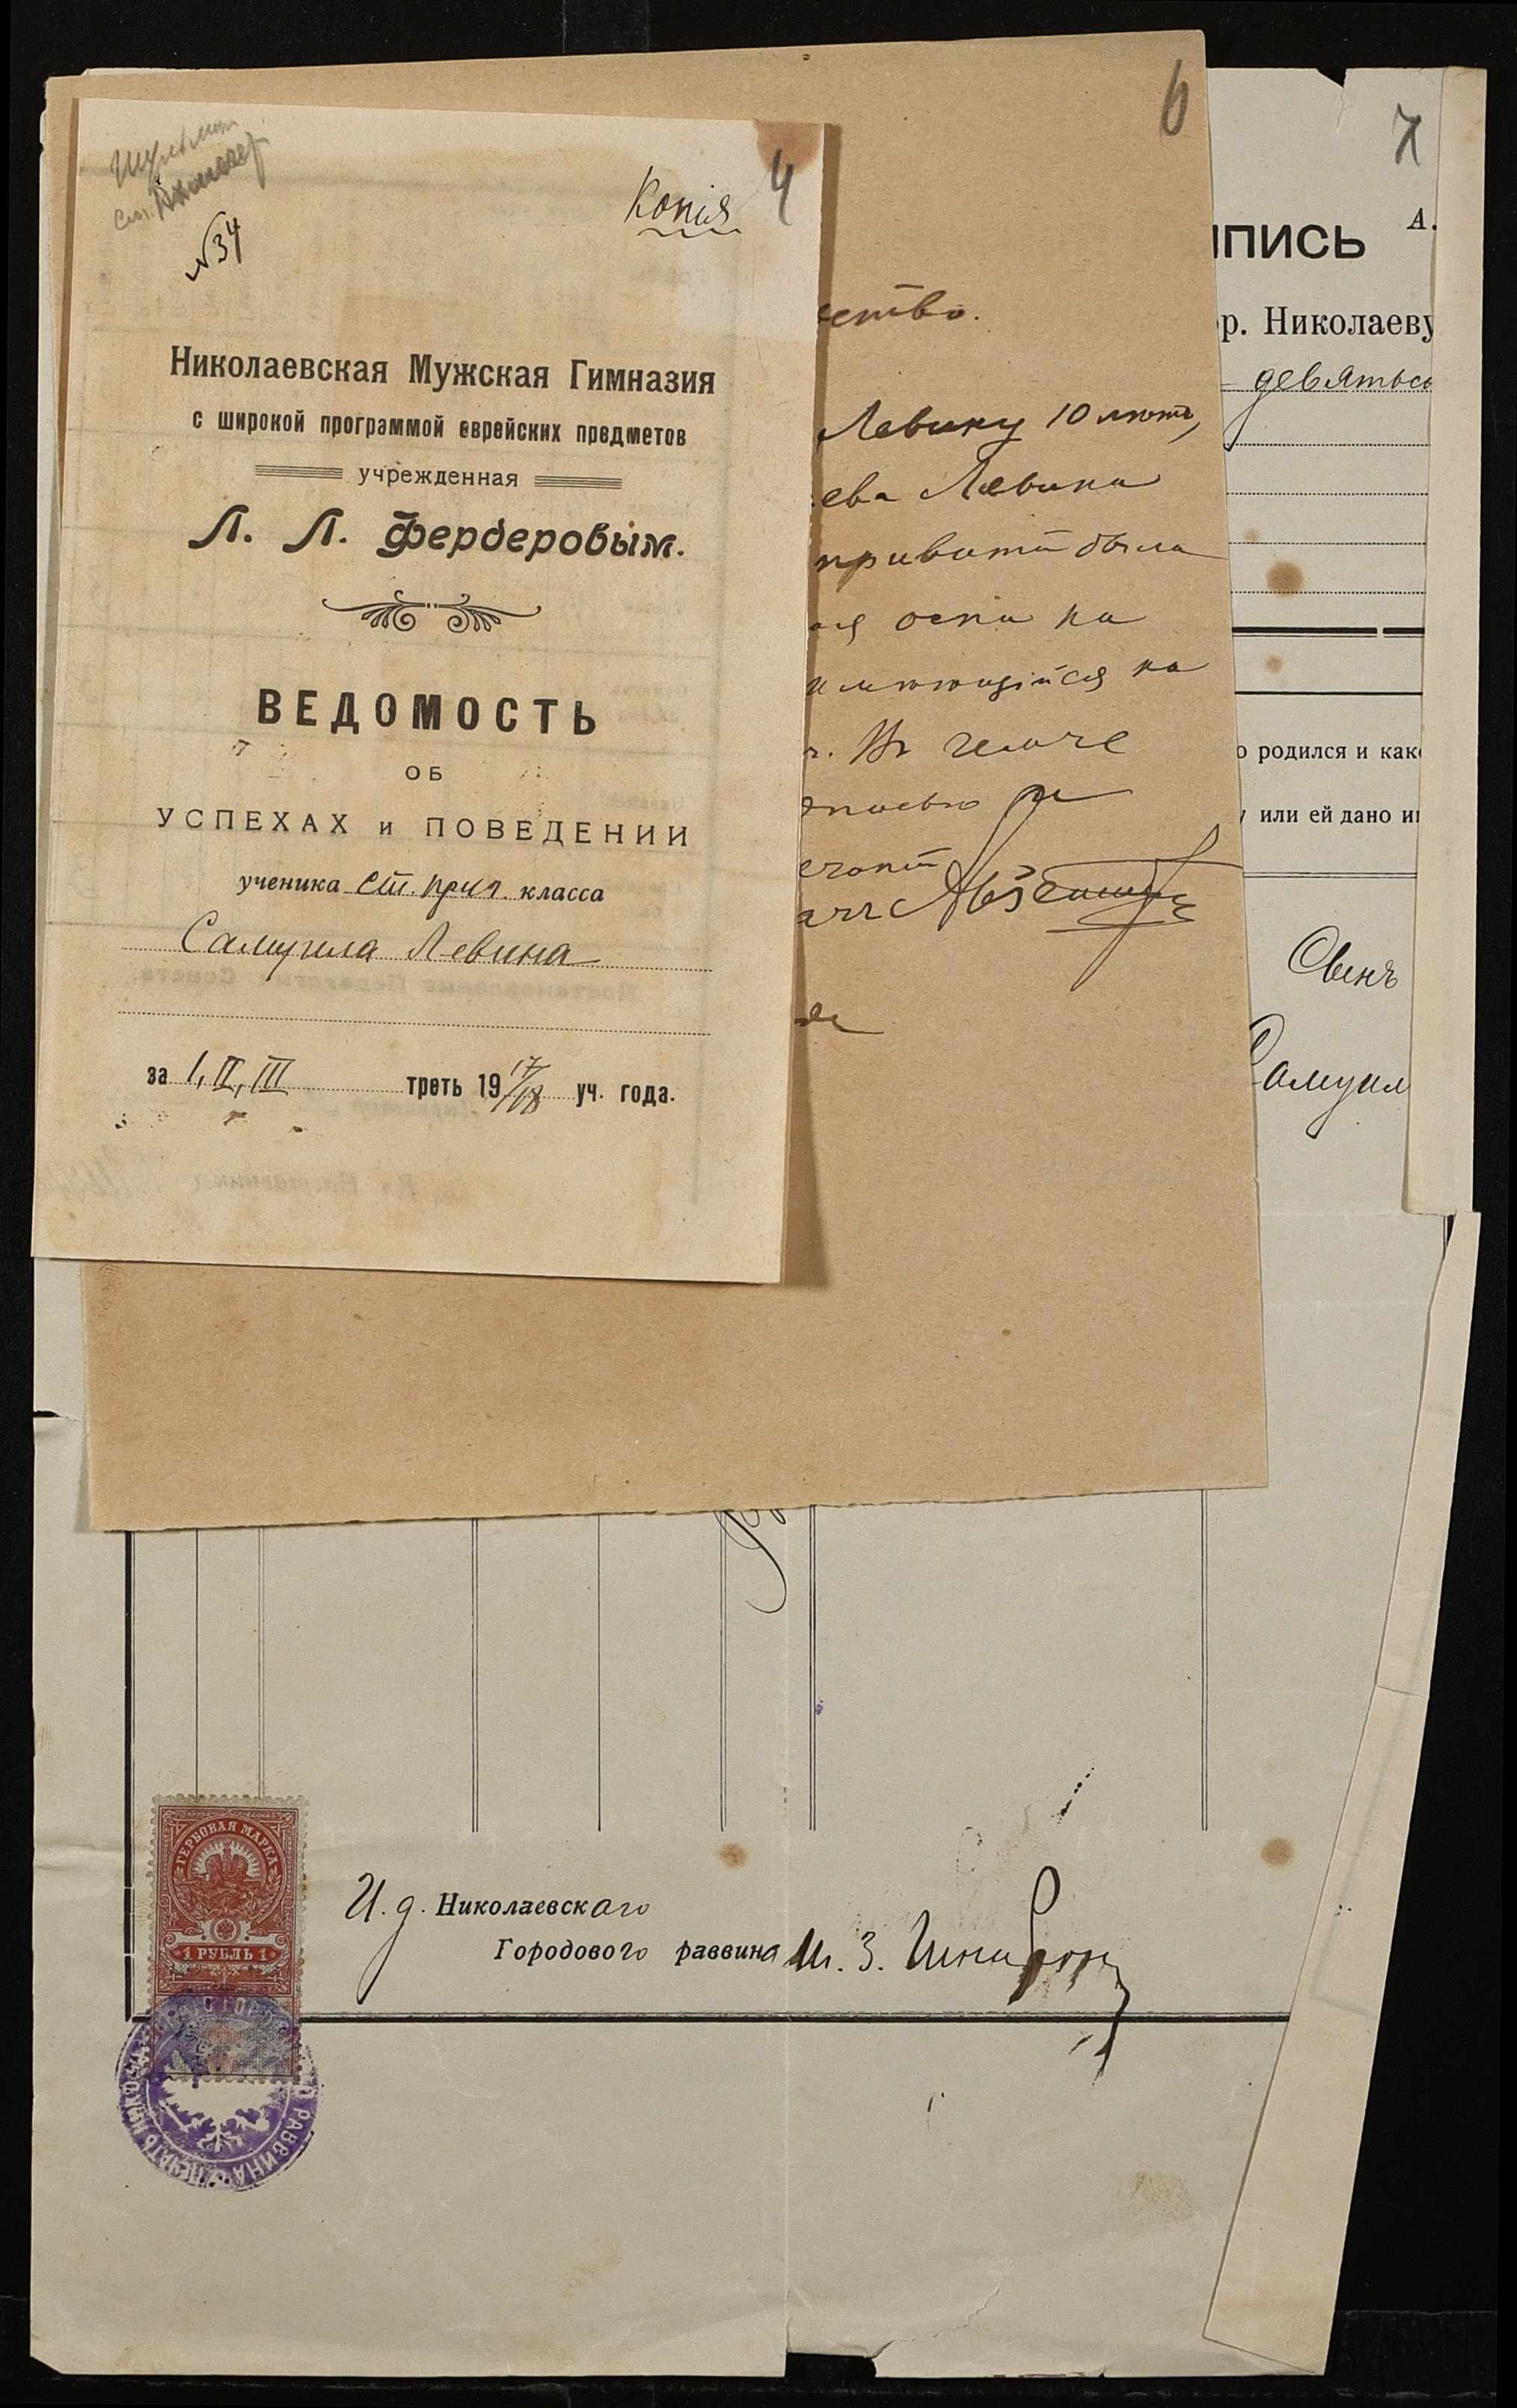 №34
Копія
4
Николаевская Мужская Гимназия
с широкой программой еврейских предметов
учрежденная
Л. Л. Ферберовым.
ВЕДОМОСТЬ
ОБ
УСПЕХАХ и ПОВЕДЕНИИ
ученика ст. приг. класса
Самуила Левина
за I, II, III треть 1917/18 уч. года.
6
ство.
Левину 10 лѣтъ,
ева Левина
привита была
оспа на
имѣющійся на
7
А.
ПИСЬ
ор. Николаеву
девятьсо
о родился и как
у или ей дано и
Овенъ
Самуил
ГЕРБОВАЯ МАРКА
1 РУБЛЬ 1
И. д. Николаевскаго
Городового раввина
РАВВИНА ПЕЧАТЬ